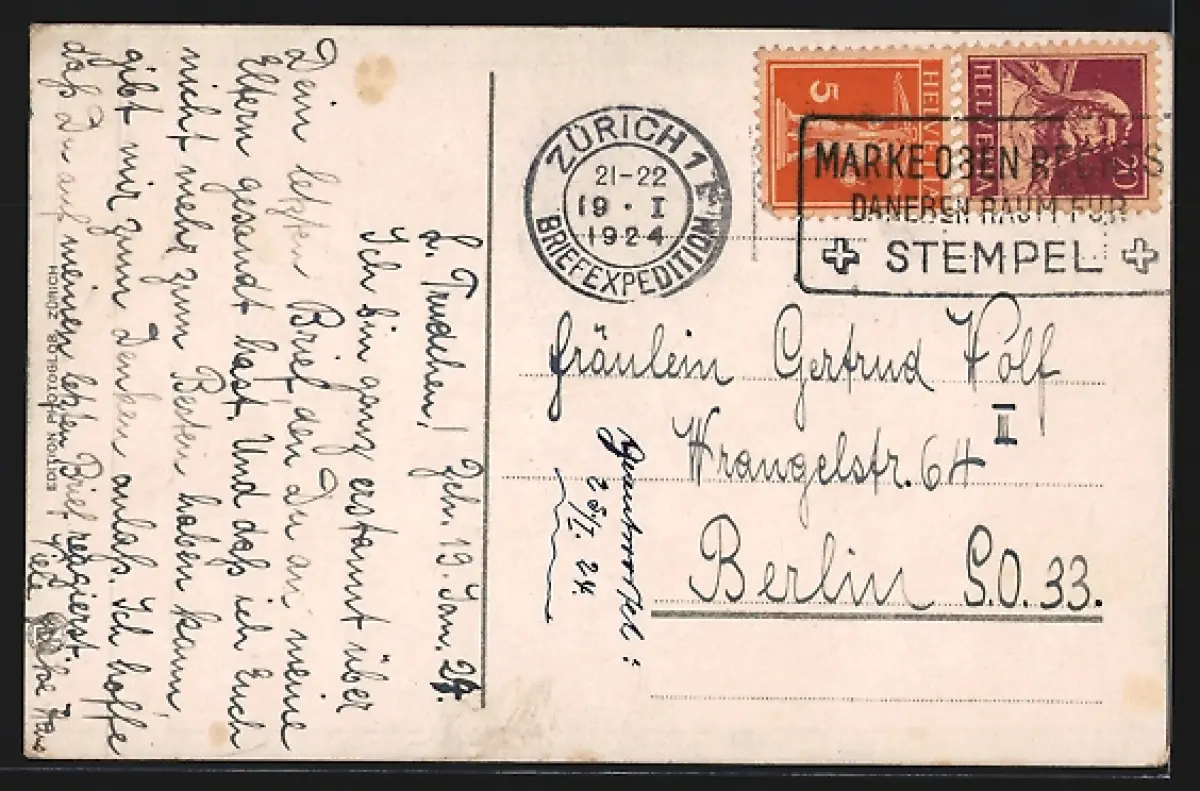 L. Trudchen! Zch. 19. Jan. 24.
Ich bin ganz erstaunt über
Dein letzten Brief, den Du an meine
Eltern gesandt hast. Und daß ich Euch
nicht mehr zum Besten haben kann,
gibt mir zum Denken anlaß. Ich hoffe
daß Du auf meinen letzten Brief reagierst.
Viele Grüße Hans
EDITION PHOTOGLOB, ZÜRICH
ZÜRICH 1
21-22
19 · I
1924
BRIEFEXPEDITION
5
HELVETIA
HELVETIA
20
MARKE OBEN RECHTS
DANEBEN RAUM FÜR
STEMPEL
Fräulein Gertrud
Wrangelstr. 64 III
Berlin S.O. 33.
Beantwortet:
25/I. 24.